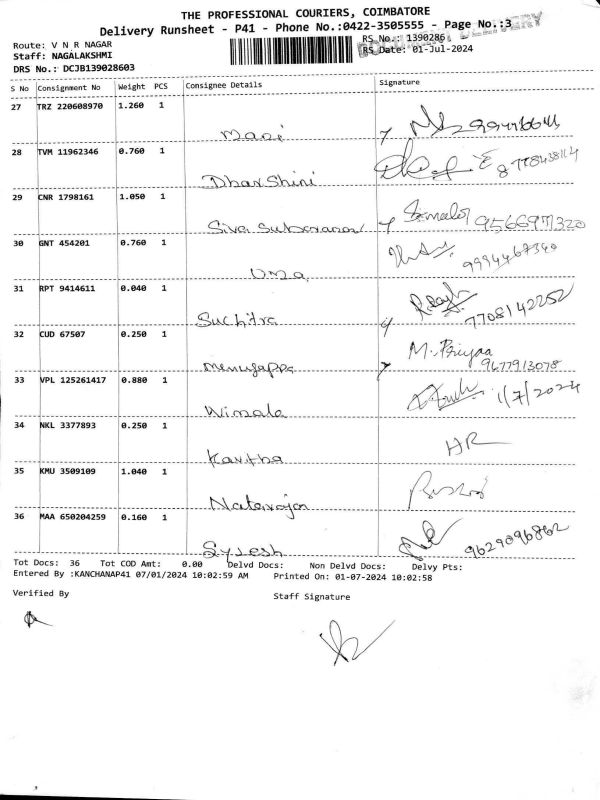 THE PROFESSIONAL COURIERS, COIMBATORE
Delivery Runsheet - P41 - Phone No.:0422-3505555 - Page No.:3
Route: V N R NAGAR
RS No.: 1390286
Staff: NAGALAKSHMI
RS Date: 01-Jul-2024
DRS No.: DCJB139028603
S No Consignment No Weight PCS Consignee Details Signature
27 TRZ 220608970 1.260 1
Mani
28 TVM 11962346 0.760 1
Dharshini
29 CNR 1798161 1.050 1
30 GNT 454201 0.760 1
Uma
31 RPT 9414611 0.040 1
Suchitra 7708142252
32 CUD 67507 0.250 1
M. Priyaa
9677913078
33 VPL 125261417 0.880 1
Wimala 1/7/2024
34 NKL 3377893 0.250 1
HR
Kavitha
35 KMU 3509109 1.040 1
36 MAA 650204259 0.160 1
9629096862
Tot Docs: 36 Tot COD Amt: 0.00 Delvd Docs: Non Delvd Docs: Delvy Pts:
Entered By :KANCHANAP41 07/01/2024 10:02:59 AM Printed On: 01-07-2024 10:02:58
Verified By
Staff Signature